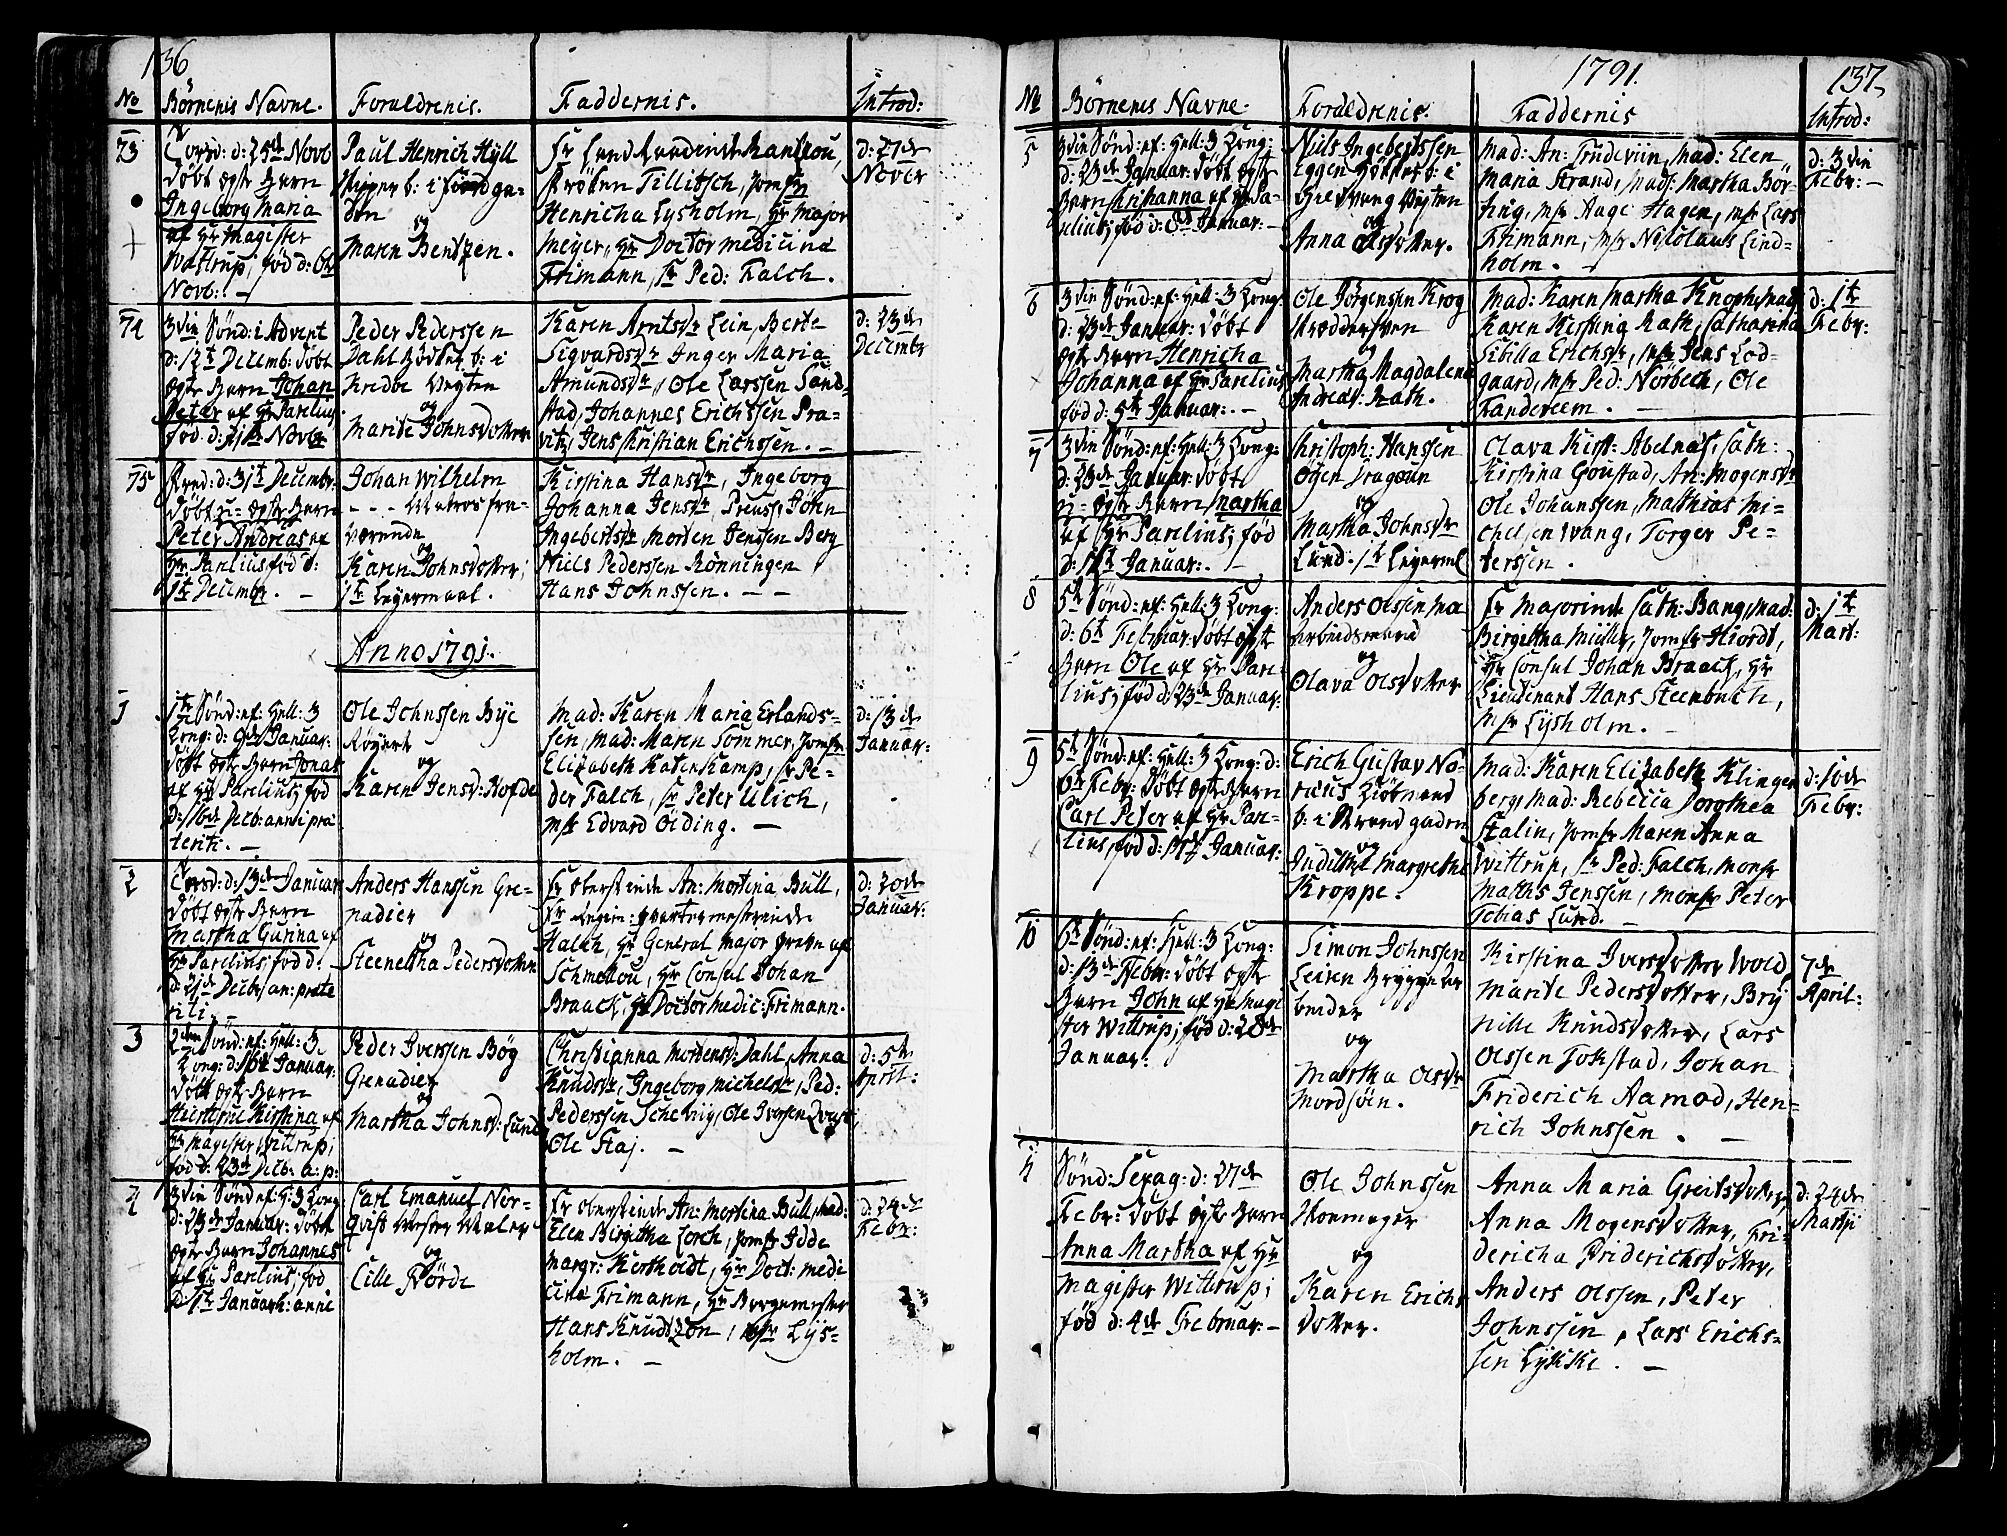 136
No Börnenis Navne. Foraldrenis. Faddernis. Introd:
73
Torsd: d: 25de Novb
döbt ægte Barn
Ingeborg Maria
af Hr Magister
Wittrup; föd d: 6te
Novb: —
Paul Henrich Hyll
Skipper b: i Fiordga-
den
og
Maren Bentzen.
Fröken Tillitsch, Jomfr
Henricha Lysholm, Hr Major
Meyer, Hr Doctor medicina
Frimann, Sr Ped: Falch.
d: 27de
Nover
74
3die Sönd: i Advent
d: 12te Decemb: döbt
ægte Barn Johan
Peter af Hr Parelius
föd d: 11te Novbr
Peder Pederssen
Dahl b: i
Vegten
og
Marite Johnsdotter
Karen Arntsdr Lein, Berte
Sigvardsdr Inger Maria
Amundsdr, Ole Larssen Sund-
stad, Johannes Erichssen Pra-
vitz, Jens Christian Erichssen. —
d: 23de
Decembr
75
Fred: d: 31te Decembr:
döbt u-ægte Barn
Peter Andreas af
Hr Parelius föd d:
1te Decembr. —
Johan Wilhelm
- - - Matros fra-
værende
og
Karen Johnsdotter;
1te Leyermaal.
Kirstina Hansdr, Ingeborg
Johanna Jensdr, Preuss, John
Ingebertsdr Morten Jenssen Berg
Niels Pederssen Rönningen
Hans Johnssen. — —
Anno 1791.
1
1te Sönd: ef: Hell: 3
Kong: d: 9de Januar:
döbt ægte Barn Jonas
af Hr Parelius; föd
d: 16de Decb: anni præ
teriti. —
Ole Johnssen Bye
Røgert
og
Karen Jensd: Hofde
Mad: Karen Maria Erlands-
sen, Mad: Maren Sommer, Jomfr
Elizabeth Katenkamp, Sr Pe-
der Falch, Sr Peter Ulich,
Msr Edvard Oiding. —
d: 13de
Januar:
2
Torsd: d: 13de Januar
döbt ægte Barn
Martha Gurina af
Hr Parelius; föd d:
d: 21de Decbr an: præte
riti. —
Anders Hanssen Gre-
nadier
og
Steenetha Pedersdotter
Fr Oberstinde An: Mortina Bull,
Fr Regim: Qvartermesterinde
Halch, Hr General Major Greve af
Schmettou, Hr Consul Johan
Braack, Hr Doctor Medic: Frimann.
d: 20de
Januar:
3
2den Sönd: ef: Hell: 3
Kong: d: 16te Januar:
döbt ægte Barn
Kirstina af
Hr Magister Wittrup;
föd d: 23de Decb: a: p:
Peder Iverssen Bög
Grenadier
og
Martha Johnsd: Lund
Christianna Mortensd: Dahl, Anna
Knudsdr, Ingeborg Michelsdr, Ped:
Pederssen Schelviig, Ole Iverssen
Ole Staj. —
d: 5te
April:
4
3die Sönd: ef: H: 3 Kong
d: 23de Januar: döbt
ægte Barn Johannes
af Hr Parelius; föd
d: 1te Januarii: anni
Carl Emanuel Nor-
Qvist Mester Maler
og
Cille Nörde
Fr Oberstinde An: Mortina Bull, Mad:
Elen Birgitha Lorch, Jomfr Idde
Margr: Hertholdt, Hr Doct: medi
cina Frimann, Hr Borgemester
Hans Knudtzon, Msr Lys-
holm. —
d: 24de
Febr:
1791. 137,
No Börnenes Navne. Forældrenis. Faddernis Introd:
5
3die Sönd: ef: Hell: 3 Kong:
d: 23de Januar: döbt ægte
Barn Christianna af Hr Pa-
relius; föd d: 8de Januar: —
Niels Ingebertssen
Eggen Höker b: i
Vegten
og
Anna Olsdotter.
Mad: An: Trudeviin, Mad: Elen
Maria Strand, Mad: Martha Bör-
ting, Msr Aage Hagen, Msr Lars
Frimann, Msr Nicolaus Lind-
holm. —
d: 3die
Febr: —
6
3die Sönd: ef: Hell: 3 Kong:
d: 23de Januar: döbt
ægte Barn Henricha
Johanna af Hr Parelius
föd d: 5te Januar: —
Ole Jörgenssen Krog
Skreddersven
og
Martha Magdalena
Andreas: Rath.
Mad: Karen Martha Knoph, Mad:
Karen Kirstina Rath, Catharina
Sibilla Erichsdr, Msr Jens Lod-
gaard, Msr Ped: Nörbech, Ole
Fandereem. —
d: 1te
Febr:
7
3die Sönd: ef: Hell: 3 Kong:
d: 23de Januar: döbt
u-ægte Barn Martha
af Hr Parelius; föd
d: 11te Januar: —
Christoph: Hanssen
Ögen Dragoun
og
Martha Johnsdr
Lund. 1te Leyerml
Olava Kirst: Abelnas, Cath:
Kirstina Goustad, An: Mogensdr
Ole Johanssen, Mathias Mi-
chelsen Wang, Torger Pe-
terssen.
8
5te Sönd: ef: Hell: 3 Kong:
d: 6te Februar: döbt ægte
Barn Ole af Hr Pare-
lius; föd d: 23de Januar:
Anders Olssen Moe
Arbeidsmand
og
Olava Olsdotter
Fr Majorinde Cath: Bang, Mad:
Birgitha Müller, Jomfr Hiordt,
Hr Consul Johan Braack, Hr
Lieutenant Hans Steenbuch,
Msr Lysholm. —
d: 1te
Mart:
9
5te Sönd: ef: Hell: 3 Kong: d:
6te Febr: döbt ægte Barn
Carl Peter af Hr Pare-
lius; föd d: 11te Januar:
Erich Gustav No-
rieus Kiöbmand
b: i Strandgaden
og
Juditha Margretha
Kroppe.
Mad: Karen Elizabeth Klingen
berg, Mad: Rebecca Dorothea
Stalin, Jomfr Maren Anna
Wittrup, Sr Ped: Falch, Monsr
Maths Jenssen, Monsr Peter
Tobias Lund. —
d: 10de
Febr:
10
6te Sönd: ef: Hell: 3 Kong:
d: 13de Febr: döbt ægte
Barn John af Hr Magi
ster Wittrup; föd d: 28de
Januar:
Simon Johnssen
Leiren Bryggear
beider
og
Martha Olsdr
Mordsöen.
Kirstina Iversdotter Wold,
Marite Pedersdotter, Bry
nille Knudsdotter, Lars
Olssen Tokstad, Johan
Friderich Aamod, Hen-
rich Johnssen. —
7de
April:
11
Sönd: Sexag: d: 27de
Febr: döbt ægte Barn
Anna Martha af Hr
Magister Wittrup;
föd d: 4de Februar: —
Ole Johnssen
Skomager
og
Karen Erichs
dotter.
Anna Maria Greitsdotter,
Anna Mogensdotter, Fri-
dericha Friderichsdotter,
Anders Olssen, Peter
Johnssen, Lars Erichs-
sen Lykke. —
d: 24de
Martji